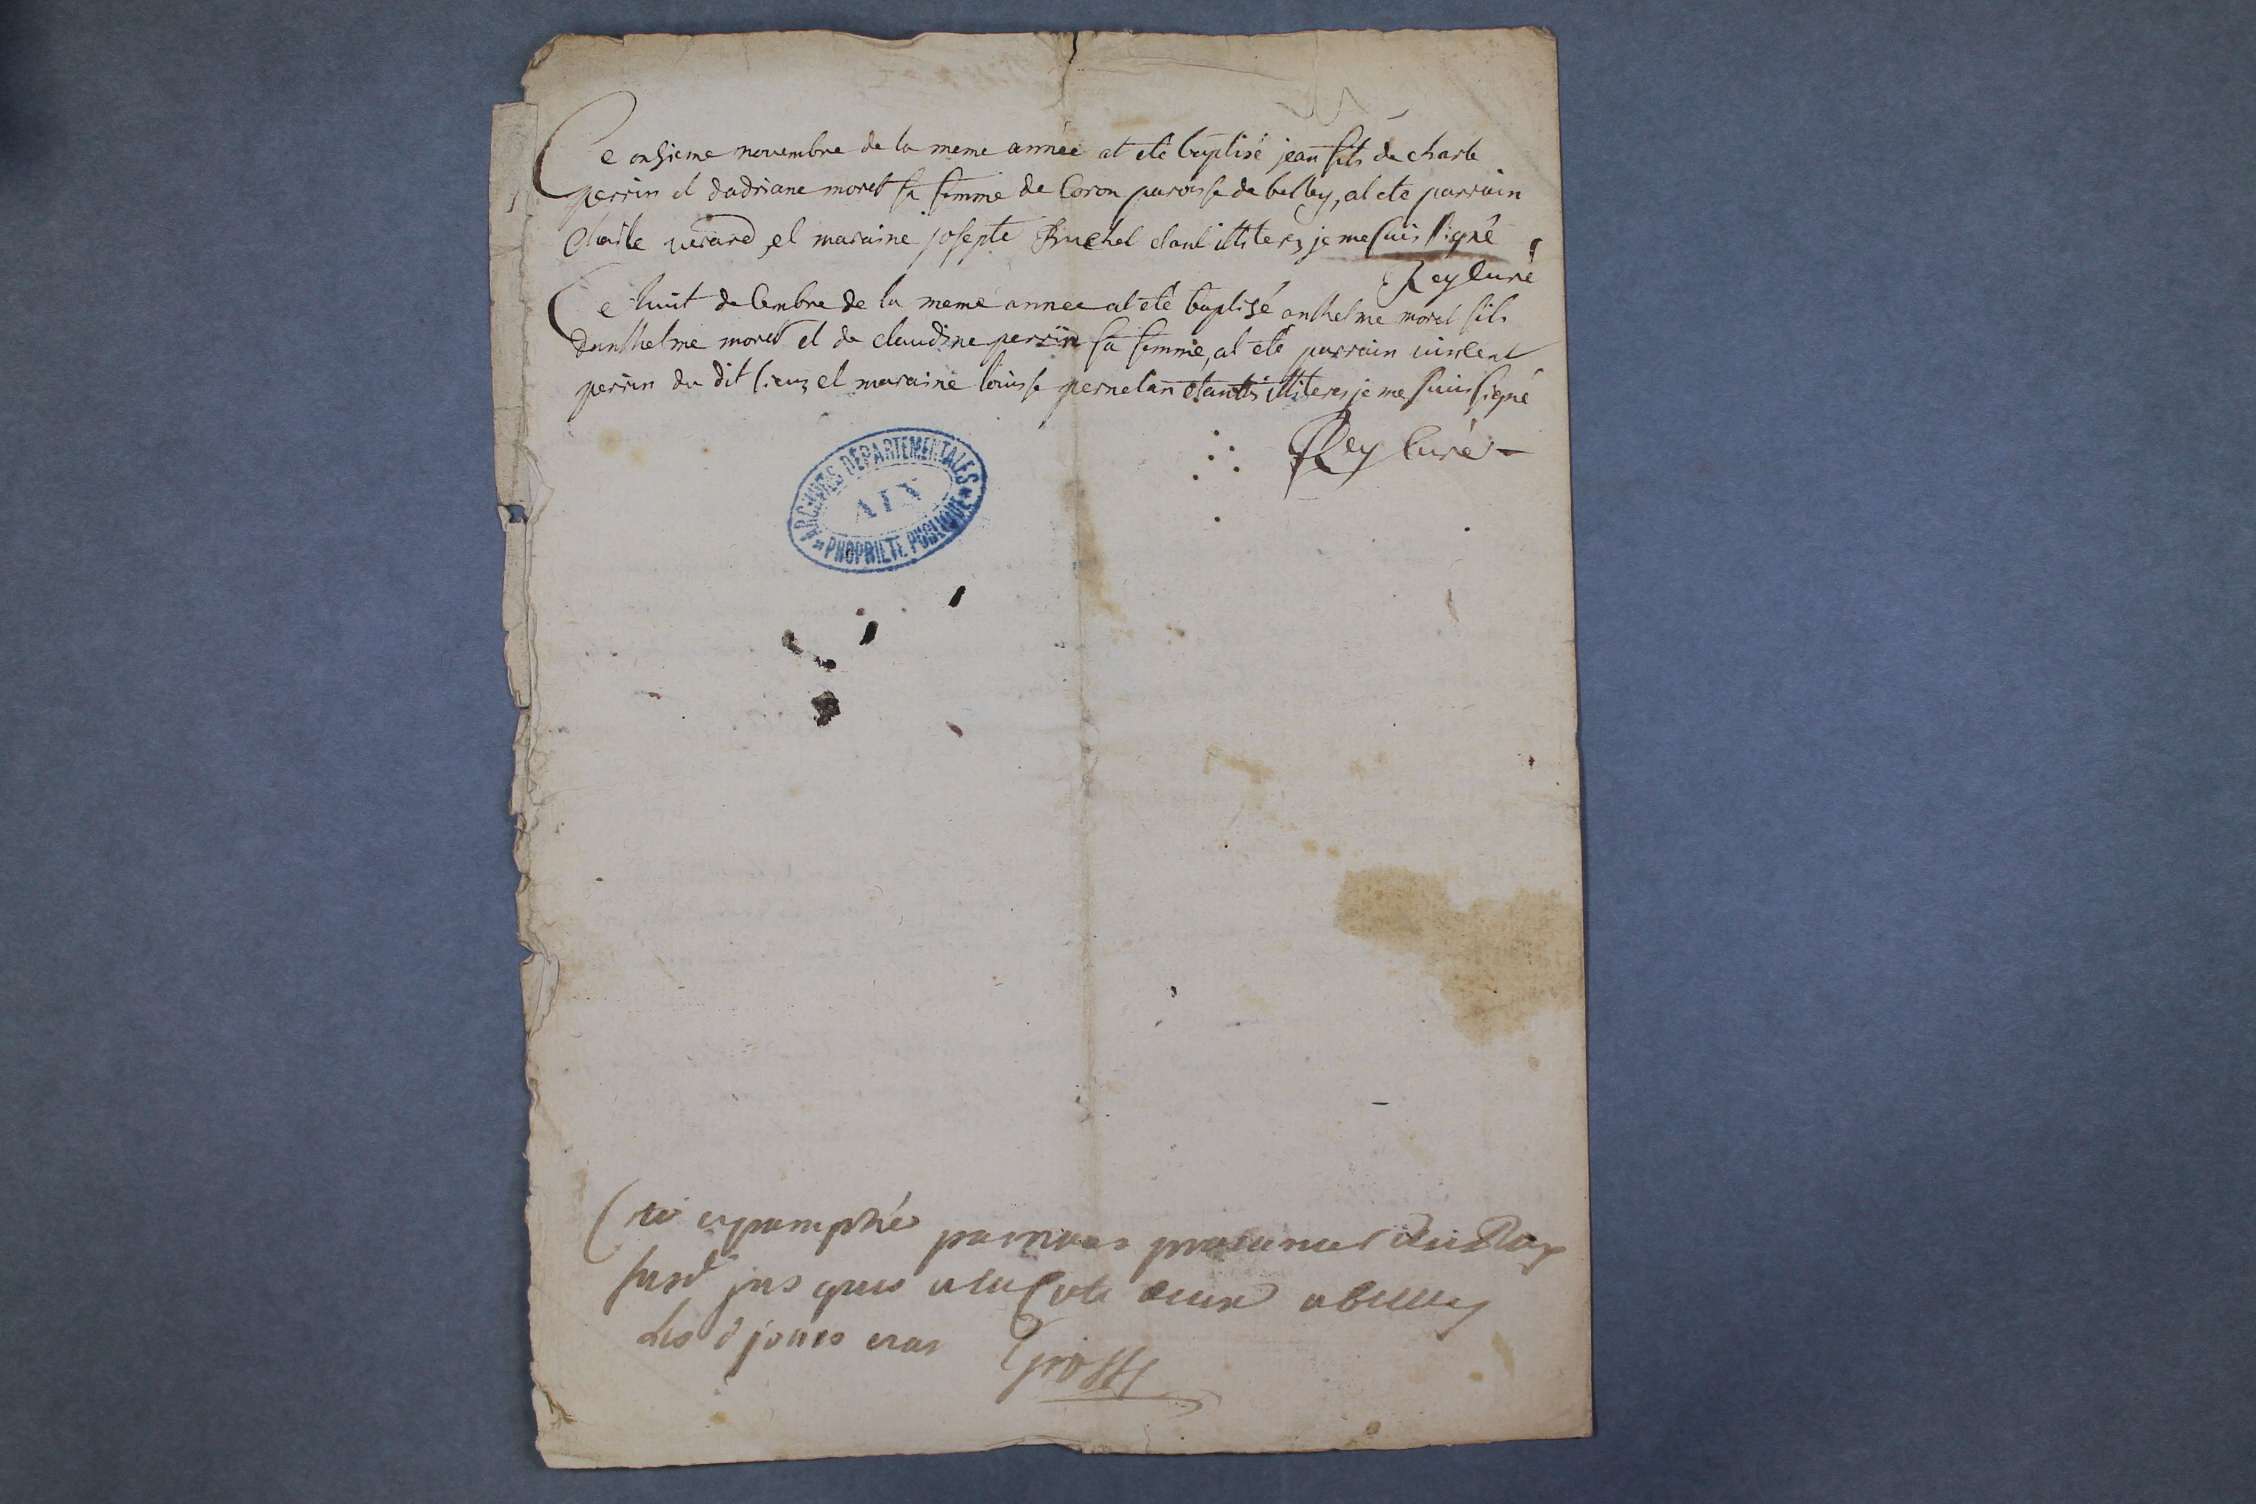 Ce onsieme novembre de la meme année at ete baptisé jean fils de charle
perrin et dadriane moret sa femme de Coron paroisse de belley, at ete parrain
Charle verard et maraine josepte Bruchet etant illiteres je me suis signé
Rey Curé
Ce huit decembre de la meme annee at ete baptisé anthelme moret fils
danthelme moret et de claudine perrin sa femme, at ete parrain vincent
perrin du dit lieu, et maraine louise pernetan etants illiteres je me suis signé
Rey Curé
ARCHIVES DEPARTEMENTALES
AIN
PROPRIETE PUBLIQUE
par nous procureur du Roy
jusques a belley
jours